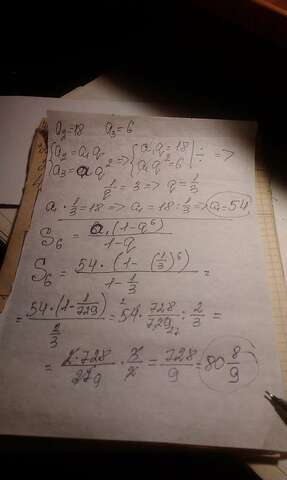 a₂=18 a₃=6
{a₂=a₁q a₃=a₁q² => {a₁q=18 a₁q²=6 | ÷ =>
1/q = 3 => q = 1/3
a₁·1/3=18 => a₁=18:1/3 => a₁=54
S₆ = a₁(1-q⁶)/1-q
S₆ = 54·(1-(1/3)⁶)/1-1/3 =
= 54·(1-1/729)/2/3 = 54·728/729 : 2/3 =
= 2·728/27 9 · 3/2 = 728/9 = 80 8/9